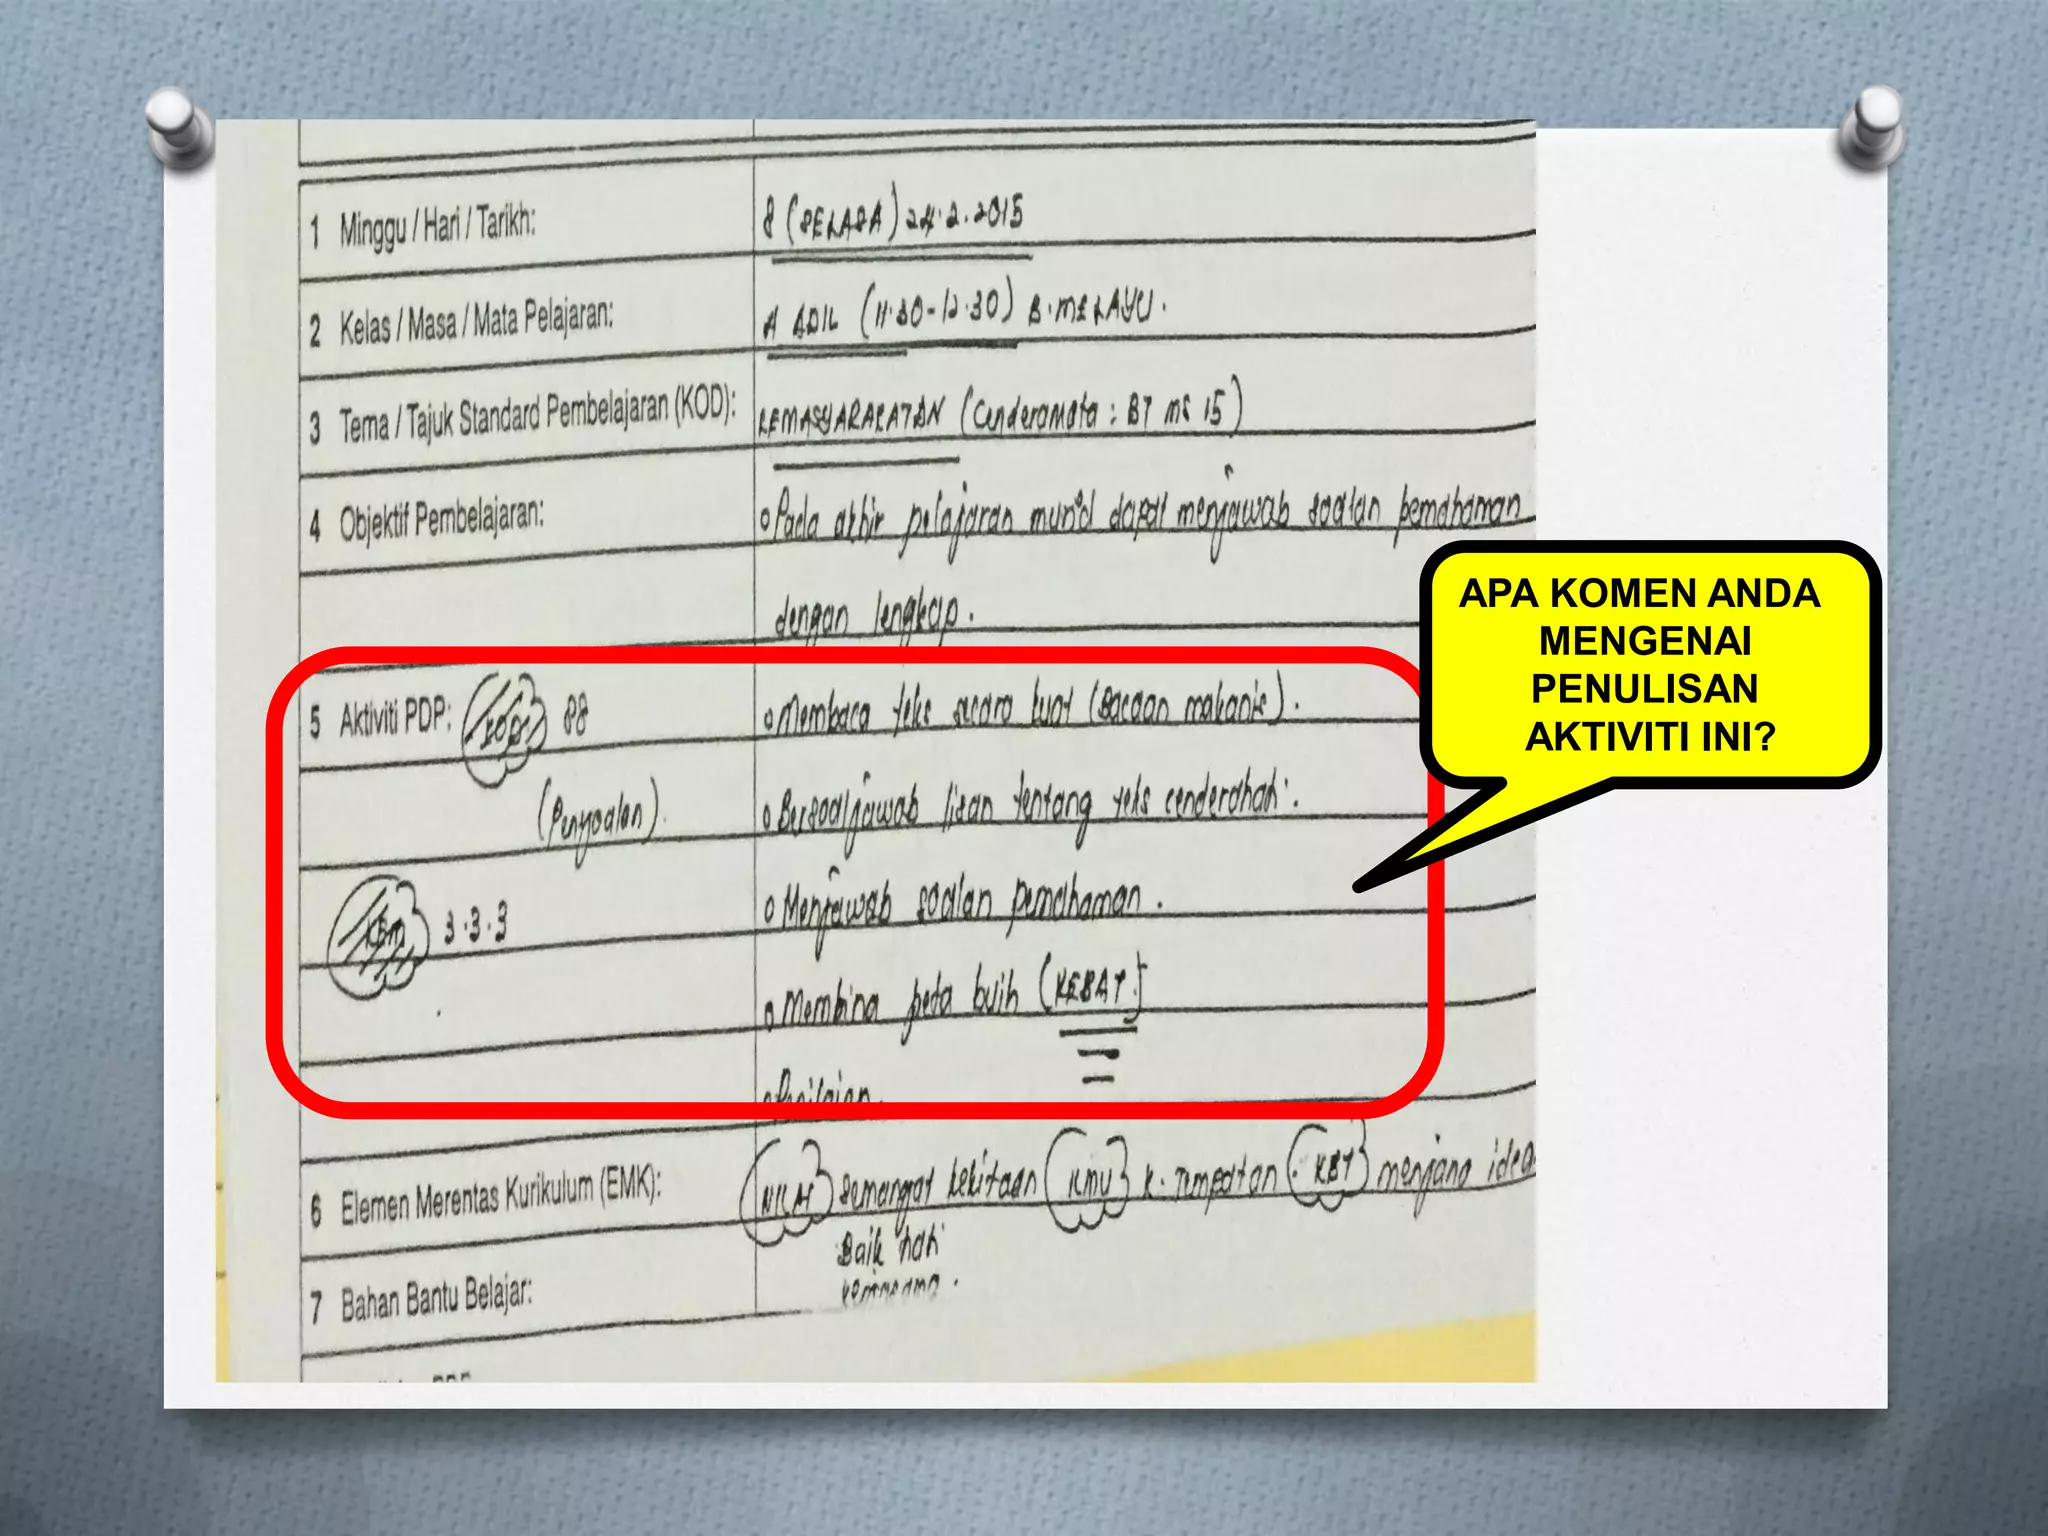 1 Minggu / Hari / Tarikh: 8 (SELASA) 24.2.2015
2 Kelas / Masa / Mata Pelajaran: 4 ADIL (11.30-12.30) B.MELAYU.
3 Tema / Tajuk Standard Pembelajaran (KOD): KEMASYARAKATAN (Cenderamata : BT ms 15)
4 Objektif Pembelajaran: Pada akhir pelajaran murid dapat menjawab soalan pemahaman
dengan lengkap.
APA KOMEN ANDA
MENGENAI
PENULISAN
AKTIVITI INI?
5 Aktiviti PDP: Membaca teks secara kuat (Bacaan mekanis).
(Penyoalan) Bersoaljawab lisan tentang teks cenderahati.
3.3.3 Menjawab soalan pemahaman.
Membina peta buih (KEBAT)
Penilaian.
6 Elemen Merentas Kurikulum (EMK): NILAI semangat kekitaan ILMU K. Tempatan KBT menjana idea
Baik hati
7 Bahan Bantu Belajar: